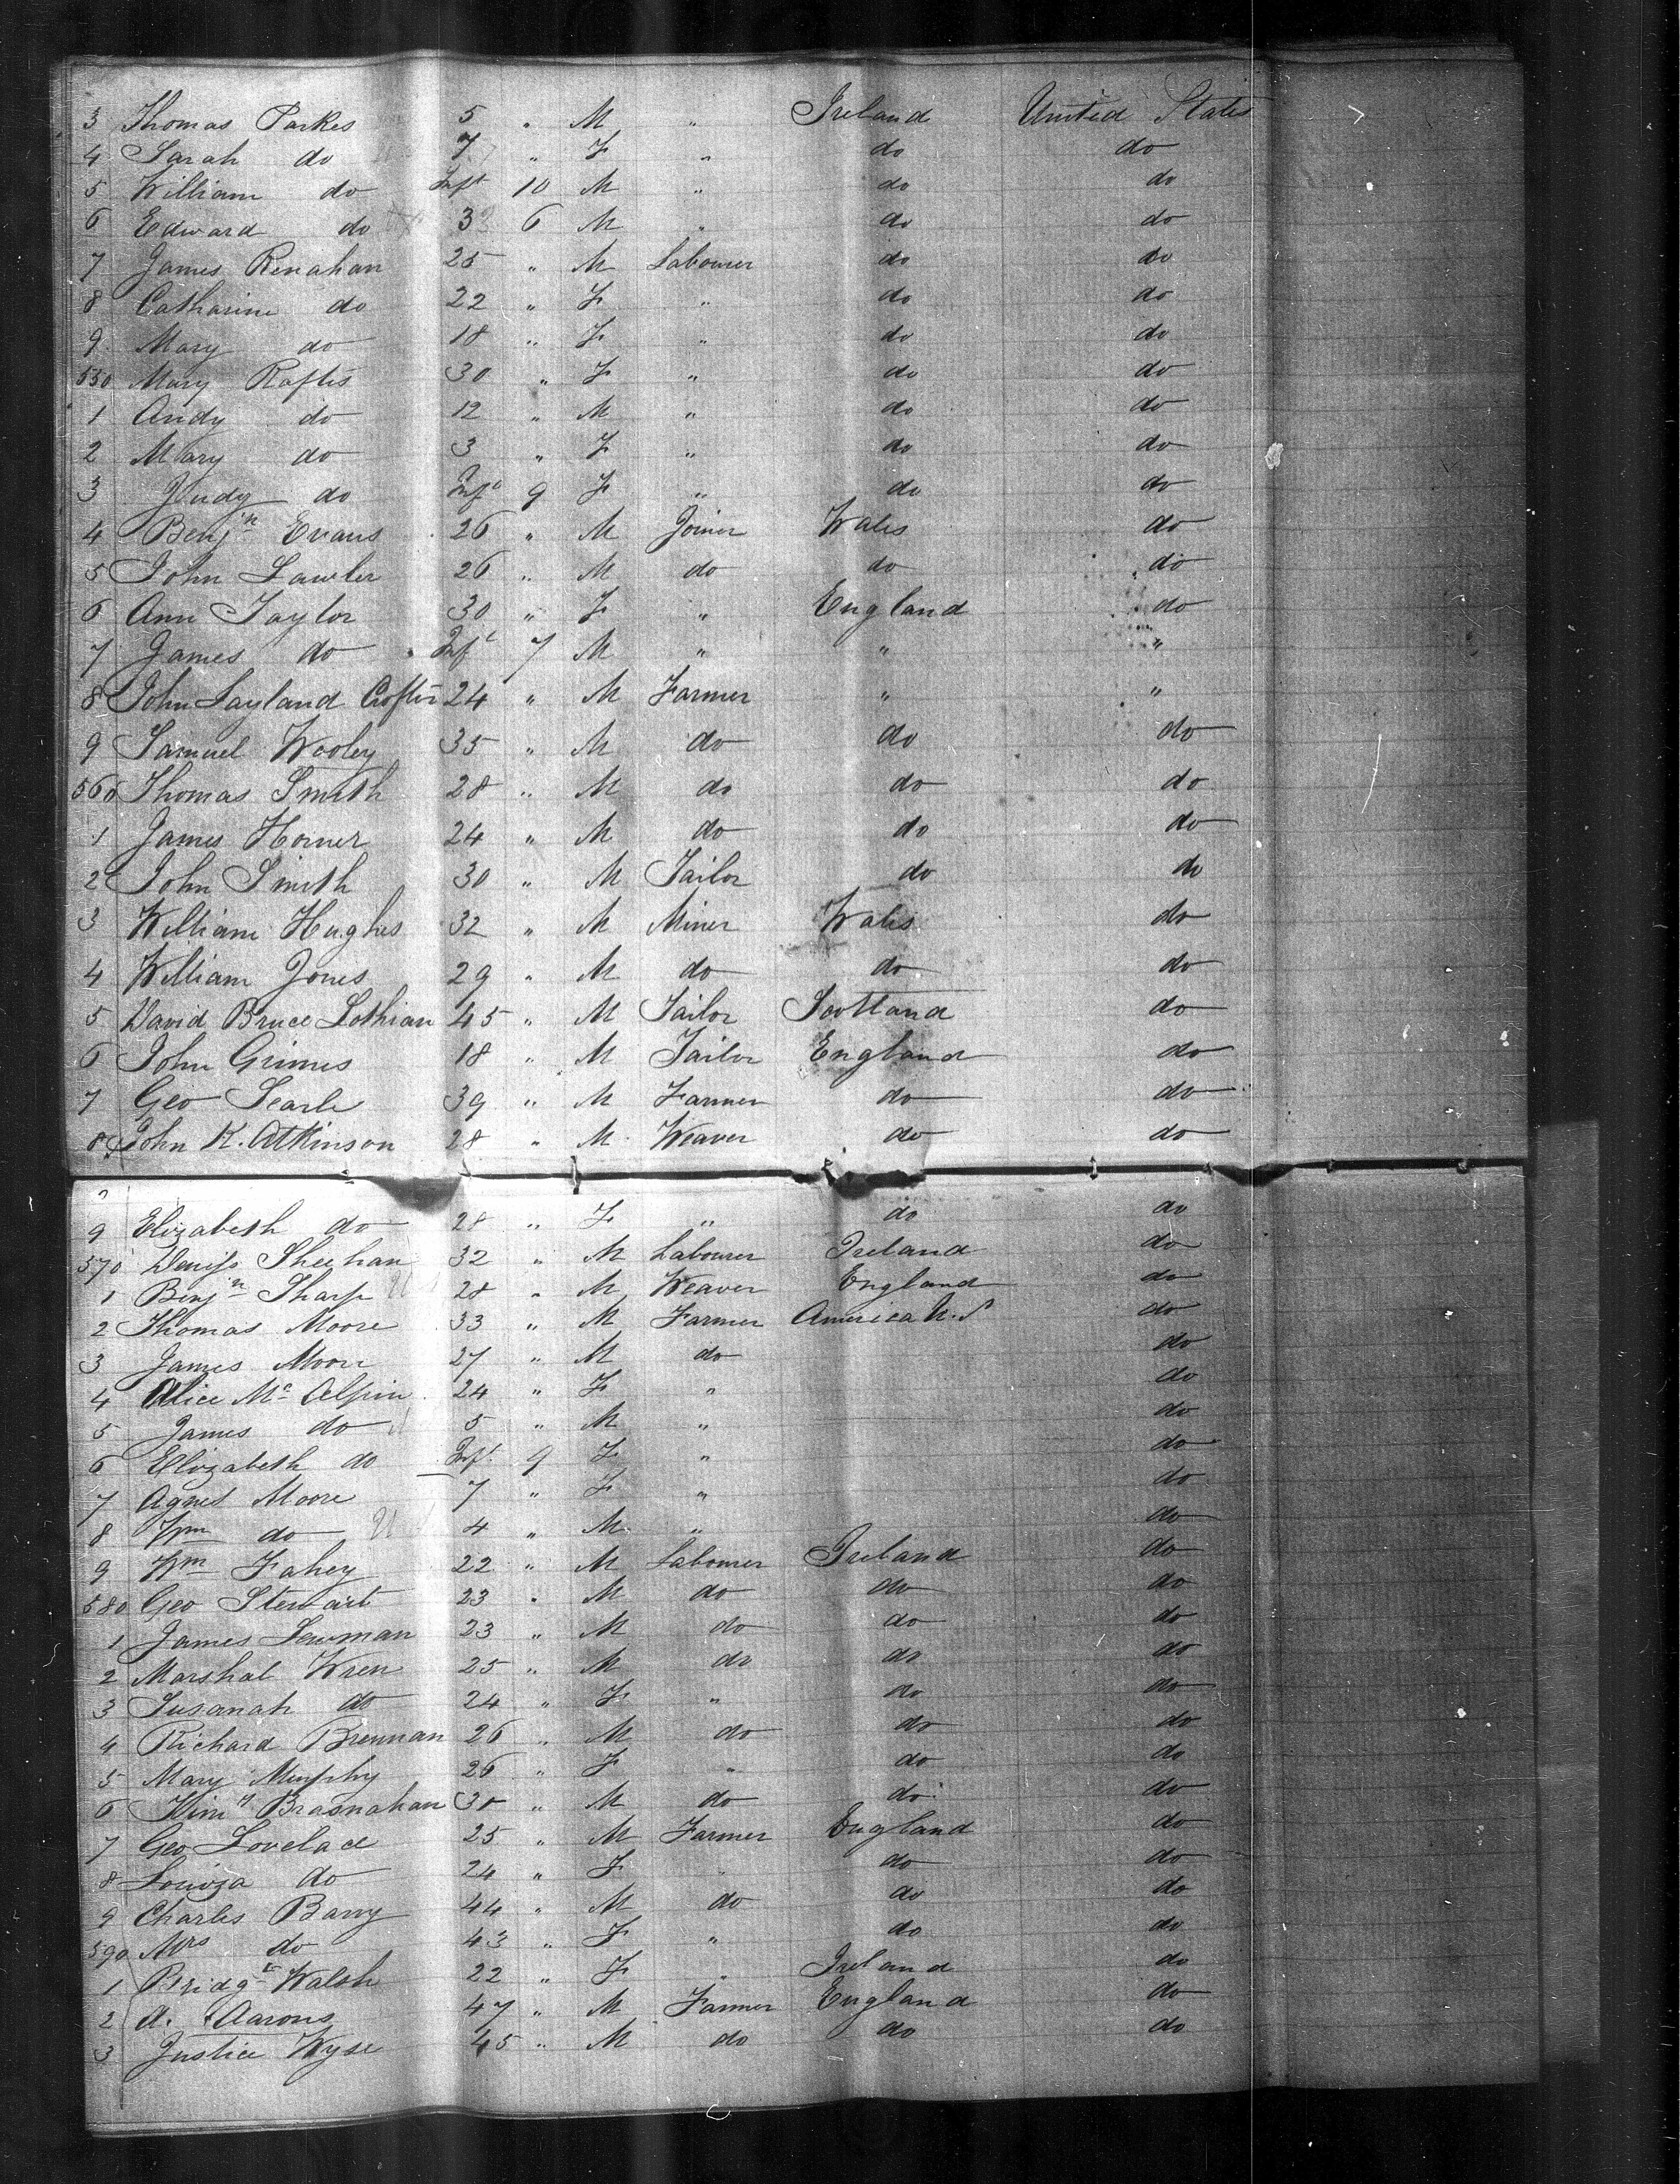 3 Thomas Parkes 5 " M " Ireland United States
4 Sarah do 7 " F " do do
5 William do Inft 10 M " do do
6 Edward do 3 6 M " do do
7 James Renahan 25 " M Labourer do do
8 Catharine do 22 " F " do do
9 Mary do 18 " F " do do
550 Mary Raftis 30 " F " do do
1 Andy do 12 " M " do do
2 Mary do 3 " F " do do
3 Judy do Inft 9 F " do do
4 Benjn Evans 26 " M Joiner Wales do
5 John Lawler 26 " M do do do
6 Ann Taylor 30 " F " England do
7 James do Inft 7 M " " "
8 John Layland Crofter 24 " M Farmer " "
9 Samuel Wooley 35 " M do do do
560 Thomas Smith 28 " M do do do
1 James Horner 24 " M do do do
2 John Smith 30 " M Tailor do do
3 William Hughes 32 " M Miner Wales do
4 William Jones 29 " M do do do
5 David Bruce Lothian 45 " M Tailor Scotland do
6 John Grimes 18 " M Tailor England do
7 Geo Searle 39 " M Farmer do do
8 John K. Atkinson 28 " M Weaver do do
9 Elizabeth do 28 " F " do do
570 Deniss Sheehan 32 " M Labourer Ireland do
1 Benjn Sharp 28 " M Weaver England do
2 Thomas Moore 33 " M Farmer America U.S do
3 James Moore 27 " M do do
4 Alice Mc Alpin 24 " F " do
5 James do 5 " M " do
6 Elizabeth do Inft 9 F " do
7 Agnes Moore 7 " F " do
8 Wm do 4 " M " do
9 Wm Fahey 22 " M Labourer Ireland do
580 Geo Stewart 23 " M do do do
1 James Lewman 23 " M do do do
2 Marshal Wren 25 " M do do do
3 Susanah do 24 " F " do do
4 Richard Brennan 26 " M do do do
5 Mary Murphy 26 " F " do do
6 Brasnahan 30 " M do do do
7 Geo Lovelace 25 " M Farmer England do
8 Louiza do 24 " F " do do
9 Charles Barry 44 " M do do do
590 Mrs do 43 " F " do do
1 Bridgt Walsh 22 " F " Ireland do
2 A. Aarons 47 " M Farmer England do
3 Justice Wyse 45 " M do do do